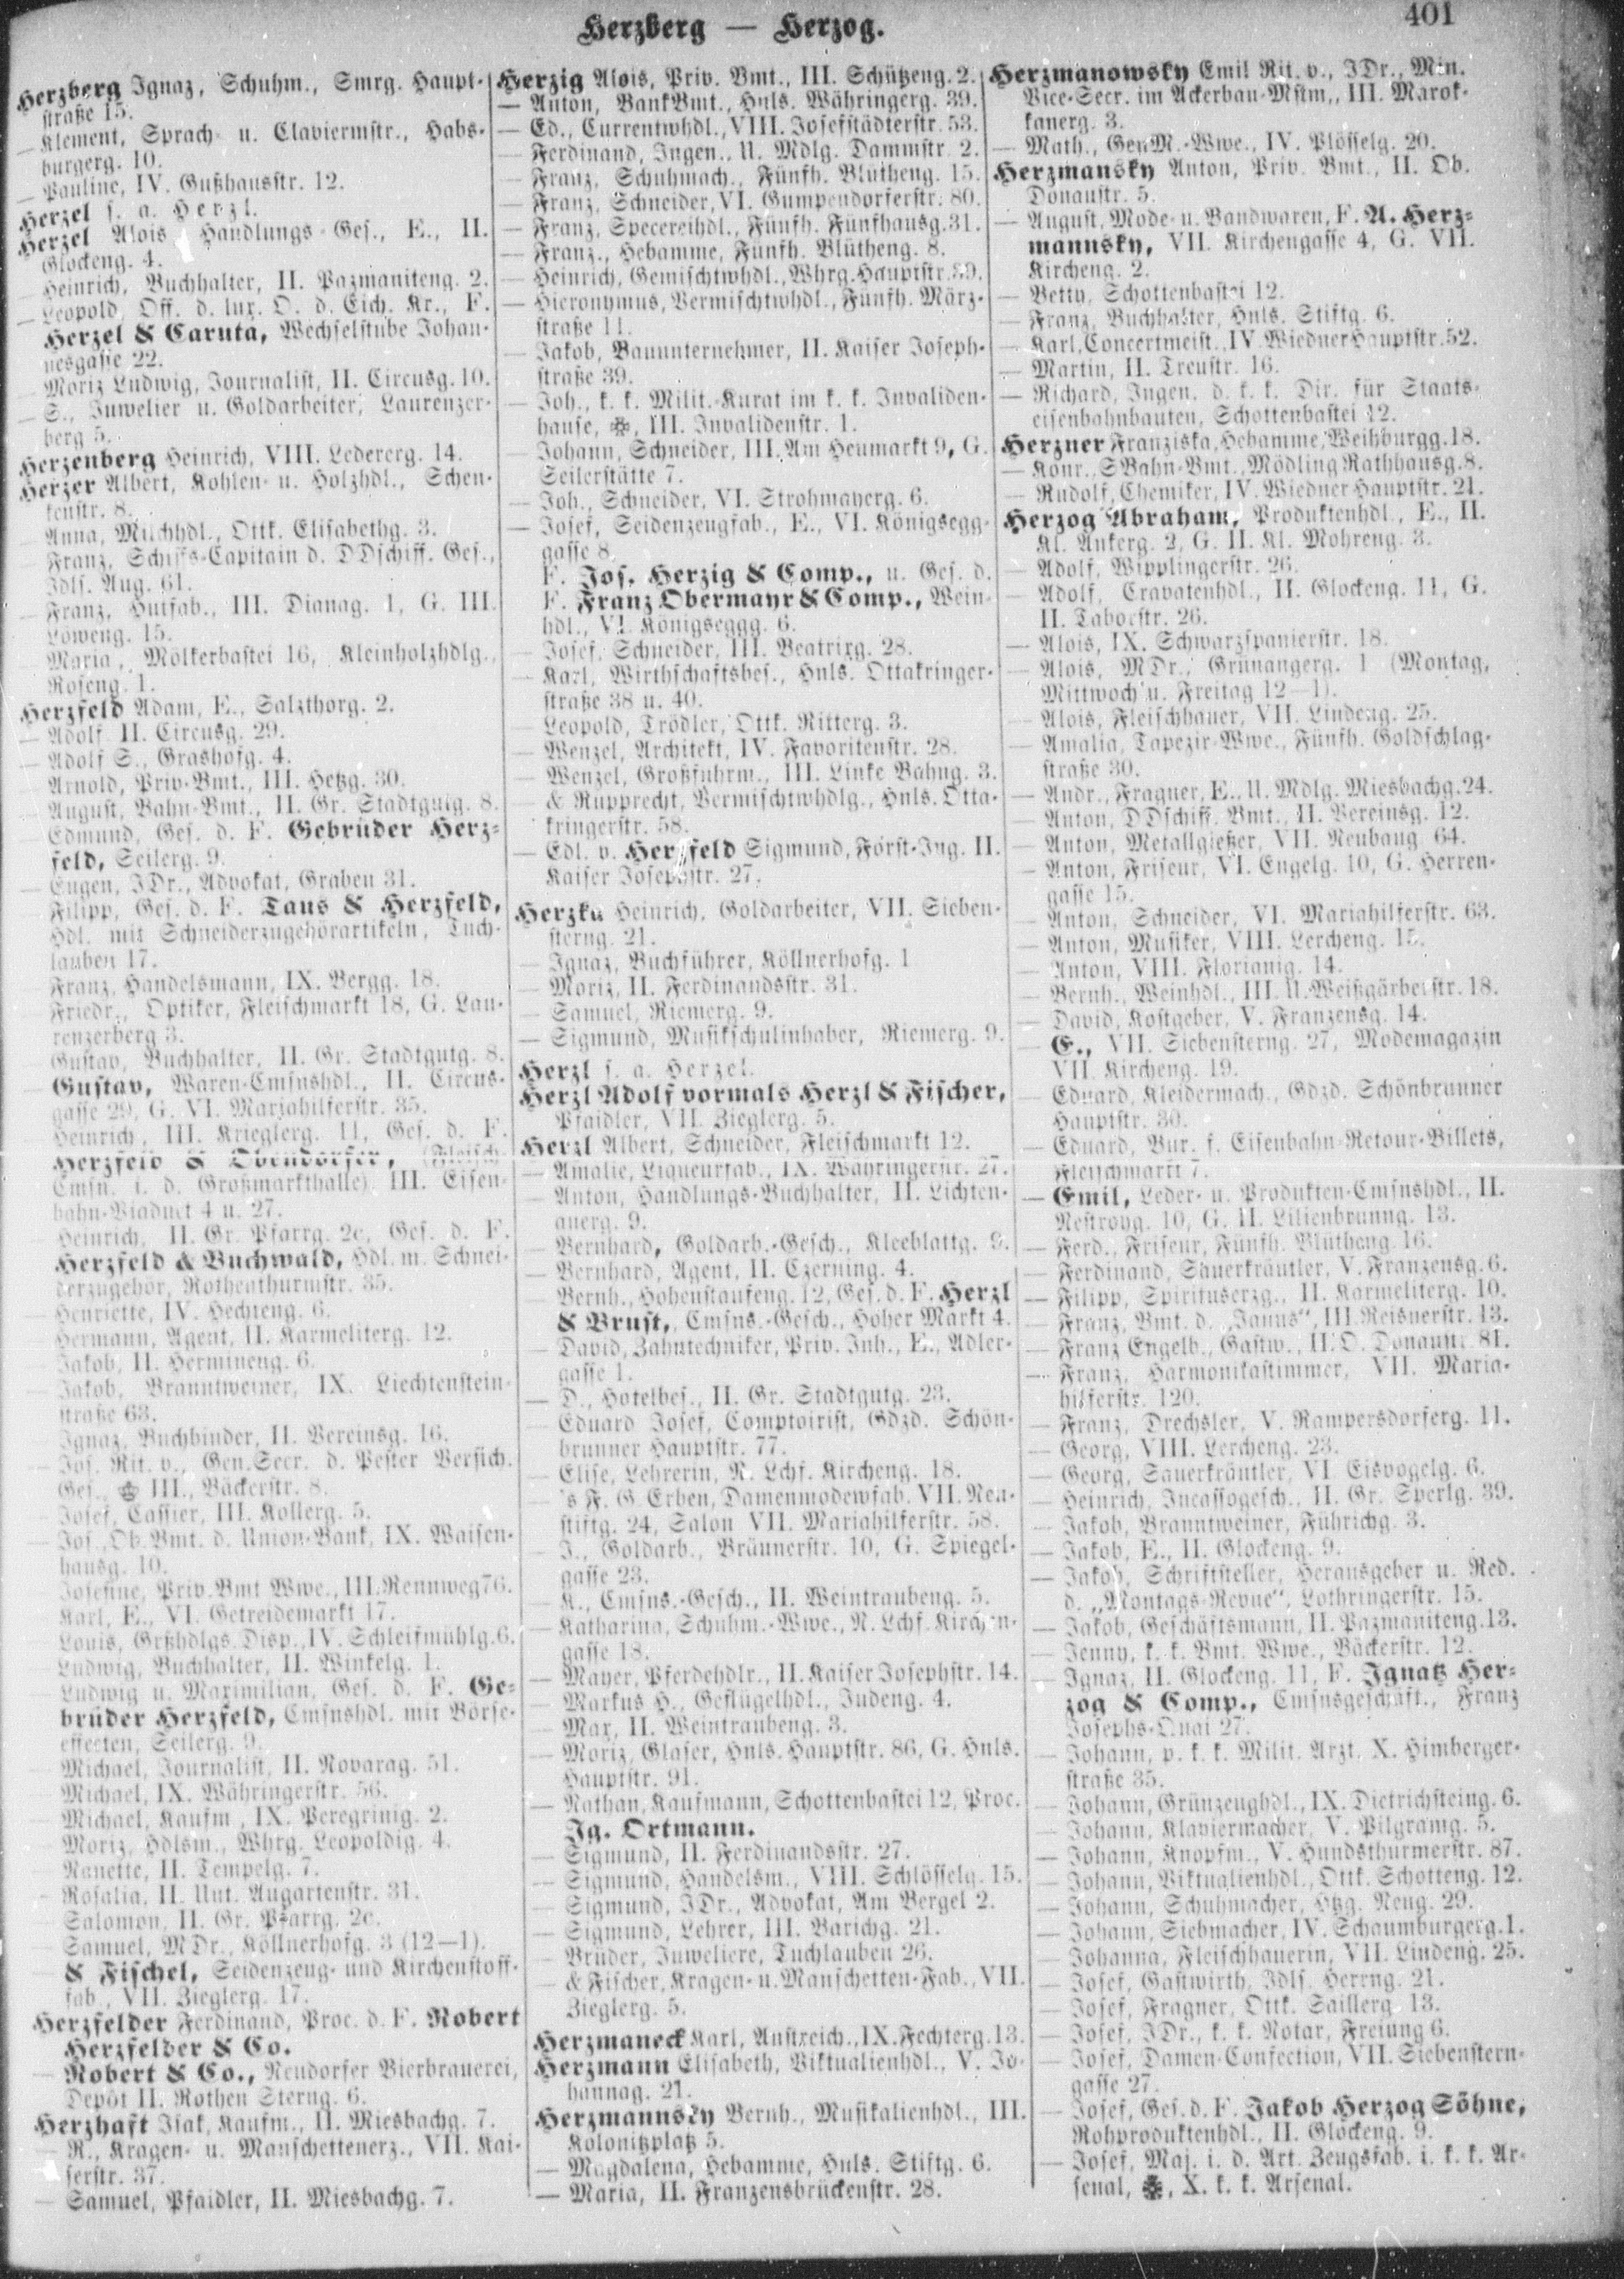 Herzberg — Herzog.
401
Herzberg Ignaz, Schuhm., Smrg. Haupt-
straße 15.
— Klement, Sprach- u. Claviermstr., Habs-
burgerg. 10.
— Pauline, IV. Gußhausstr. 12.
Herzel s. a. Herzl.
Herzel Alois, Handlungs-Ges., E., II.
Glockeng. 4.
— Heinrich, Buchhalter, II. Pazmaniteng. 2.
— Leopold, Off. d. lux. O. d. Eich. Kr., F.
Herzel & Caruta, Wechselstube Johan-
nesgasse 22.
— Moriz Ludwig, Journalist, II. Circusg. 10.
— S., Juwelier u. Goldarbeiter, Laurenzer-
berg 5.
Herzenberg Heinrich, VIII. Ledererg. 14.
Herzer Albert, Kohlen- u. Holzhdl., Schen-
kenstr. 8.
— Anna, Milchhdl., Ottk. Elisabethg. 3.
— Franz, Schiffs-Capitain d. DDschiff. Ges.,
Jdls. Aug. 61.
— Franz, Hutfab., III. Dianag. 1, G. III.
Löweng. 15.
— Maria, Mölkerbastei 16, Kleinholzhdlg.,
Roseng. 1.
Herzfeld Adam, E., Salzthorg. 2.
— Adolf, II. Circusg. 29.
— Adolf S., Grashofg. 4.
— Arnold, Priv-Bmt., III. Hetzg. 30.
— August, Bahn-Bmt., II. Gr. Stadtgutg. 8.
— Edmund, Ges. d. F. Gebrüder Herz-
feld, Seilerg. 9.
— Eugen, JDr., Advokat, Graben 31.
— Filipp, Ges. d. F. Taus & Herzfeld,
Hdl. mit Schneiderzugehörartikeln, Tuch-
lauben 17.
— Franz, Handelsmann, IX. Bergg. 18.
— Friedr., Optiker, Fleischmarkt 18, G. Lau-
renzerberg 3.
— Gustav, Buchhalter, II. Gr. Stadtgutg. 8.
— Gustav, Waren-Cmsnshdl., II. Circus-
gasse 29, G. VI. Mariahilferstr. 35.
— Heinrich, III. Krieglerg. 11, Ges. d. F.
Herzfeld & Obendorfer, (Fleisch-
Cmsn. i. d. Großmarkthalle) III. Eisen-
bahn-Viaduct 4 u. 27.
— Heinrich, II. Gr. Pfarrg. 2c, Ges. d. F.
Herzfeld & Buchwald, Hdl. m. Schnei-
derzugehör, Rothenthurmstr. 35.
— Henriette, IV. Hechteng. 6.
— Hermann, Agent, II. Karmeliterg. 12.
— Jakob, II. Hermineng. 6.
— Jakob, Branntweiner, IX. Liechtenstein-
straße 63.
— Ignaz, Buchbinder, II. Vereinsg. 16.
— Jos. Rit. v., Gen.Secr. d. Pester Versich.
Ges., III., Bäckerstr. 8.
— Josef, Cassier, III. Kollerg. 5.
— Jos., Ob.Bmt. d. Union-Bank, IX. Waisen-
hausg. 10.
— Josefine, Priv.Bmt Wwe., III. Rennweg 76.
— Karl, E., VI. Getreidemarkt 17.
— Louis, Grßhdlgs.Disp., IV. Schleifmühlg. 6.
— Ludwig, Buchhalter, II. Winkelg. 1.
— Ludwig u. Maximilian, Ges. d. F. Ge-
brüder Herzfeld, Cmsnshdl. mit Börse-
effecten, Seilerg. 9.
— Michael, Journalist, II. Novarag. 51.
— Michael, IX. Währingerstr. 56.
— Michael, Kaufm., IX. Peregrinig. 2.
— Moriz, Hdlsm., Whrg. Leopoldig. 4.
— Nanette, II. Tempelg. 7.
— Rosalia, II. Unt. Augartenstr. 31.
— Salomon, II. Gr. Pfarrg. 2c.
— Samuel, MDr., Köllnerhofg. 3 (12—1).
— & Fischel, Seidenzeug- und Kirchenstoff-
fab., VII. Zieglerg. 17.
Herzfelder Ferdinand, Proc. d. F. Robert
Herzfelder & Co.
— Robert & Co., Neudorfer Bierbrauerei,
Depôt II. Rothen Sterng. 6.
Herzhaft Isak, Kaufm., II. Miesbachg. 7.
— R., Kragen- u. Manschettenerz., VII. Kai-
serstr. 37.
— Samuel, Pfaidler, II. Miesbachg. 7.
Herzig Alois, Priv. Bmt., III. Schützeng. 2.
— Anton, BankBmt., Hnls. Währingerg. 39.
— Ed., Currentwhdl., VIII. Josefstädterstr. 53.
— Ferdinand, Ingen., U. Mdlg. Dammstr. 2.
— Franz, Schuhmach., Fünfh. Blütheng. 15.
— Franz, Schneider, VI. Gumpendorferstr. 80.
— Franz, Specereihdl., Fünfh. Fünfhausg. 31.
— Franz., Hebamme, Fünfh. Blütheng. 8.
— Heinrich, Gemischtwhdl., Whrg. Hauptstr. 39.
— Hieronymus, Vermischtwhdl., Fünfh. März-
straße 11.
— Jakob, Bauunternehmer, II. Kaiser Joseph-
straße 39.
— Joh., k. k. Milit.-Kurat im k. k. Invaliden-
hause, III. Invalidenstr. 1.
— Johann, Schneider, III. Am Heumarkt 9, G.
Seilerstätte 7.
— Joh., Schneider, VI. Strohmayerg. 6.
— Josef, Seidenzeugfab., E., VI. Königsegg-
gasse 8,
F. Jos. Herzig & Comp., u. Ges. d.
F. Franz Obermayr & Comp., Wein-
hdl., VI. Königseggg. 6.
— Josef, Schneider, III. Beatrixg. 28.
— Karl, Wirthschaftsbes., Hnls. Ottakringer-
straße 38 u. 40.
— Leopold, Trödler, Ottk. Ritterg. 3.
— Wenzel, Architekt, IV. Favoritenstr. 28.
— Wenzel, Großfuhrm., III. Linke Bahng. 3.
— & Rupprecht, Vermischtwhdlg., Hnls. Otta-
kringerstr. 58.
— Edl. v. Herzfeld Sigmund, Forst-Ing. II.
Kaiser Josephstr. 27.
Herzka Heinrich, Goldarbeiter, VII. Sieben-
sterng. 21.
— Ignaz, Buchführer, Köllnerhofg. 1
— Moriz, II. Ferdinandsstr. 31.
— Samuel, Riemerg. 9.
— Sigmund, Musikschulinhaber, Riemerg. 9.
Herzl s. a. Herzel.
Herzl Adolf vormals Herzl & Fischer,
Pfaidler, VII. Zieglerg. 5.
Herzl Albert, Schneider, Fleischmarkt 12.
— Amalie, Liqueurfab., IX. Währingerstr. 27.
— Anton, Handlungs-Buchhalter, II. Lichten-
auerg. 9.
— Bernhard, Goldarb.-Gesch., Kleeblattg. 9.
— Bernhard, Agent, II. Czerning. 4.
— Bernh., Hohenstaufeng. 12, Ges. d. F. Herzl
& Brust, Cmsns.-Gesch., Hoher Markt 4.
— David, Zahntechniker, Priv. Inh., E., Adler-
gasse 1.
— D., Hotelbes., II. Gr. Stadtgutg. 23.
— Eduard Josef, Comptoirist, Gdzd. Schön-
brunner Hauptstr. 77.
— Elise, Lehrerin, N. Lchf. Kircheng. 18.
— 's F. G Erben, Damenmodewfab. VII. Neu-
stiftg. 24, Salon VII. Mariahilferstr. 58.
— J., Goldarb., Bräunerstr. 10, G. Spiegel-
gasse 23.
— K., Cmsns.-Gesch., II. Weintraubeng. 5.
— Katharina, Schuhm.-Wwe., N. Lchf. Kirchen-
gasse 18.
— Mayer, Pferdehdlr., II. Kaiser Josephstr. 14.
— Markus H., Geflügelhdl., Judeng. 4.
— Max, II. Weintraubeng. 3.
— Moriz, Glaser, Hnls. Hauptstr. 86, G. Hnls.
Hauptstr. 91.
— Nathan, Kaufmann, Schottenbastei 12, Proc.
Ig. Ortmann.
— Sigmund, II. Ferdinandsstr. 27.
— Sigmund, Handelsm., VIII. Schlösselg. 15.
— Sigmund, JDr., Advokat, Am Bergel 2.
— Sigmund, Lehrer, III. Barichg. 21.
— Brüder, Juweliere, Tuchlauben 26.
— & Fischer, Kragen- u. Manschetten-Fab., VII.
Zieglerg. 5.
Herzmaneck Karl, Anstreich., IX. Fechterg. 13.
Herzmann Elisabeth, Viktualienhdl., V. Jo-
hannag. 21.
Herzmannsky Bernh., Musikalienhdl., III.
Kolonitzplatz 5.
— Magdalena, Hebamme, Hnls. Stiftg. 6.
— Maria, II. Franzensbrückenstr. 28.
Herzmanowsky Emil Rit. v., JDr., Min.
Vice-Secr. im Ackerbau-Mstm., III. Marok-
kanerg. 3.
— Math., GenM.-Wwe., IV. Plösselg. 20.
Herzmansky Anton, Priv. Bmt., II. Ob.
Donaustr. 5.
— August, Mode- u. Bandwaren, F. A. Herz-
mannsky, VII. Kirchengasse 4, G. VII.
Kircheng. 2.
— Betty, Schottenbastei 12.
— Franz, Buchhalter, Hnls. Stiftg. 6.
— Karl, Concertmeist., IV Wiedner Hauptstr. 52.
— Martin, II. Treustr. 16.
— Richard, Ingen. d. k. k. Dir. für Staats-
eisenbahnbauten, Schottenbastei 12.
Herzner Franziska, Hebamme, Weihburgg. 18.
— Konr., SBahn-Bmt., Mödling Rathhausg. 8.
— Rudolf, Chemiker, IV. Wiedner Hauptstr. 21.
Herzog Abraham, Produktenhdl., E., II.
Kl. Ankerg. 2, G. II. Kl. Mohreng. 3.
— Adolf, Wipplingerstr. 26.
— Adolf, Cravatenhdl., II. Glockeng. 11, G.
II. Taborstr. 26.
— Alois, IX. Schwarzspanierstr. 18.
— Alois, MDr., Grünangerg. 1 (Montag,
Mittwoch u. Freitag 12—1).
— Alois, Fleischhauer, VII. Lindeng. 25.
— Amalia, Tapezir-Wwe., Fünfh. Goldschlag-
straße 30.
— Andr., Fragner, E., U. Mdlg. Miesbachg. 24.
— Anton, DDschiff. Bmt., II. Vereinsg. 12.
— Anton, Metallgießer, VII. Neubaug 64.
— Anton, Friseur, VI. Engelg. 10, G. Herren-
gasse 15.
— Anton, Schneider, VI. Mariahilferstr. 63.
— Anton, Musiker, VIII. Lercheng. 15.
— Anton, VIII. Florianig. 14.
— Bernh., Weinhdl., III. U. Weißgärberstr. 18.
— David, Kostgeber, V. Franzensg. 14.
— E., VII. Siebensterng. 27, Modemagazin
VII. Kircheng. 19.
— Eduard, Kleidermach., Gdzd. Schönbrunner
Hauptstr. 30.
— Eduard, Bur. f. Eisenbahn-Retour-Billets,
Fleischmarkt 7.
— Emil, Leder- u. Produkten-Cmsnshdl., II.
Nestroyg. 10, G. II. Lilienbrunng. 13.
— Ferd., Friseur, Fünfh. Blütheng. 16.
— Ferdinand, Sauerkräutler, V. Franzensg. 6.
— Filipp, Spirituserzg., II. Karmeliterg. 10.
— Franz, Bmt. d. „Janus" III. Reisnerstr. 13.
— Franz Engelb., Gastw., II. O. Donaustr. 81.
— Franz, Harmonikastimmer, VII. Maria-
hilferstr. 120.
— Franz, Drechsler, V. Rampersdorferg. 11.
— Georg, VIII. Lercheng. 23.
— Georg, Sauerkräutler, VI Eisvogelg. 6.
— Heinrich, Incassogesch., II. Gr. Sperlg. 39.
— Jakob, Branntweiner, Führichg. 3.
— Jakob, E., II. Glockeng. 9.
— Jakob, Schriftsteller, Herausgeber u. Red.
d. „Montags-Revue", Lothringerstr. 15.
— Jakob, Geschäftsmann, II. Pazmaniteng. 13.
— Jenny, k. k. Bmt. Wwe., Bäckerstr. 12.
— Ignaz, II. Glockeng. 11, F. Ignatz Her-
zog & Comp., Cmsnsgeschäft., Franz
Josephs-Quai 27.
— Johann, p. k. k. Milit. Arzt, X. Himberger-
straße 35.
— Johann, Grünzeughdl., IX. Dietrichsteing. 6.
— Johann, Klaviermacher, V. Pilgramg. 5.
— Johann, Knopfm., V. Hundsthurmerstr. 87.
— Johann, Viktualienhdl., Ottk. Schotteng. 12.
— Johann, Schuhmacher, Htzg. Neug. 29.
— Johann, Siebmacher, IV. Schaumburgerg. 1.
— Johanna, Fleischhauerin, VII. Lindeng. 25.
— Josef, Gastwirth, Jdls. Herrng. 21.
— Josef, Fragner, Ottk. Saillerg. 13.
— Josef, JDr., k. k. Notar, Freiung 6.
— Josef, Damen-Confection, VII. Siebenstern-
gasse 27.
— Josef, Ges. d. F. Jakob Herzog Söhne,
Rohproduktenhdl., II. Glockeng. 9.
— Josef, Maj. i. d. Art. Zeugsfab. i. k. k. Ar-
senal, X. k. k. Arsenal.